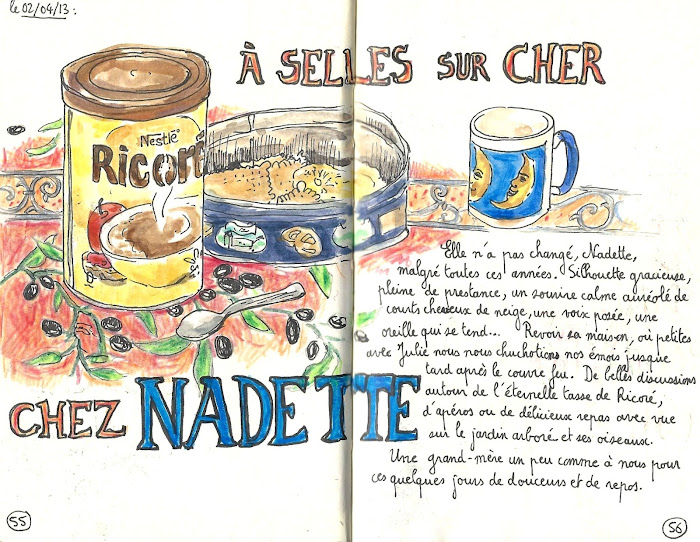 le 02/04/13:
À SELLES SUR CHER
Nestlé
Ricoré
Elle n'a pas changé, Nadette,
malgré toutes ces années. Silhouette gracieuse,
pleine de prestance, un sourire calme auréolé de
courts cheveux de neige, une voix posée, une
oreille qui se tend... Revoir sa maison, où petites
avec Julie nous nous chuchotions nos émois jusque
tard après le couvre feu. De belles discussions
autour de l'éternelle tasse de Ricoré,
d'apéros ou de délicieux repas avec vue
sur le jardin arboré et ses oiseaux.
Une grand-mère un peu comme à nous pour
ces quelques jours de douceurs et de repos.
CHEZ NADETTE
55
56